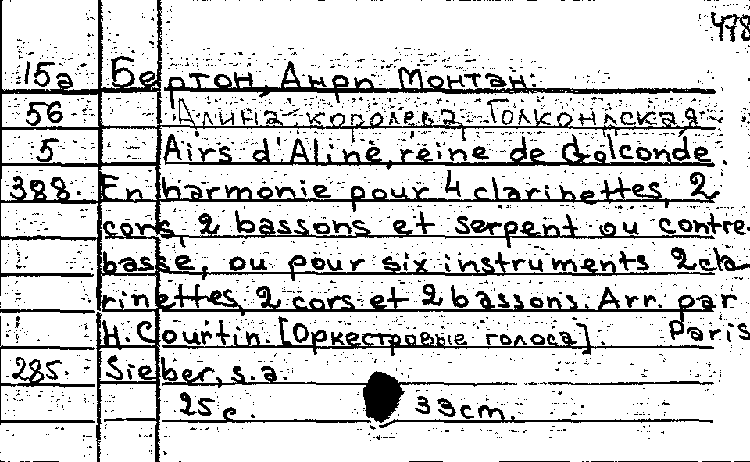 498
15а Бертон, Анри Монтан:
56 Алина королева Голкондская
5 Airs d'Aline, reine de Golconde.
388. En harmonie pour 4 clarinettes, 2
cors, 2 bassons et serpent ou contre-
basse, ou pour six instruments 2 cla-
rinettes, 2 cors et 2 bassons. Arr. par
H. Courtin. [Оркестровые голоса]. Paris
285. Sieber, s.a.
25 с. 33 cm.